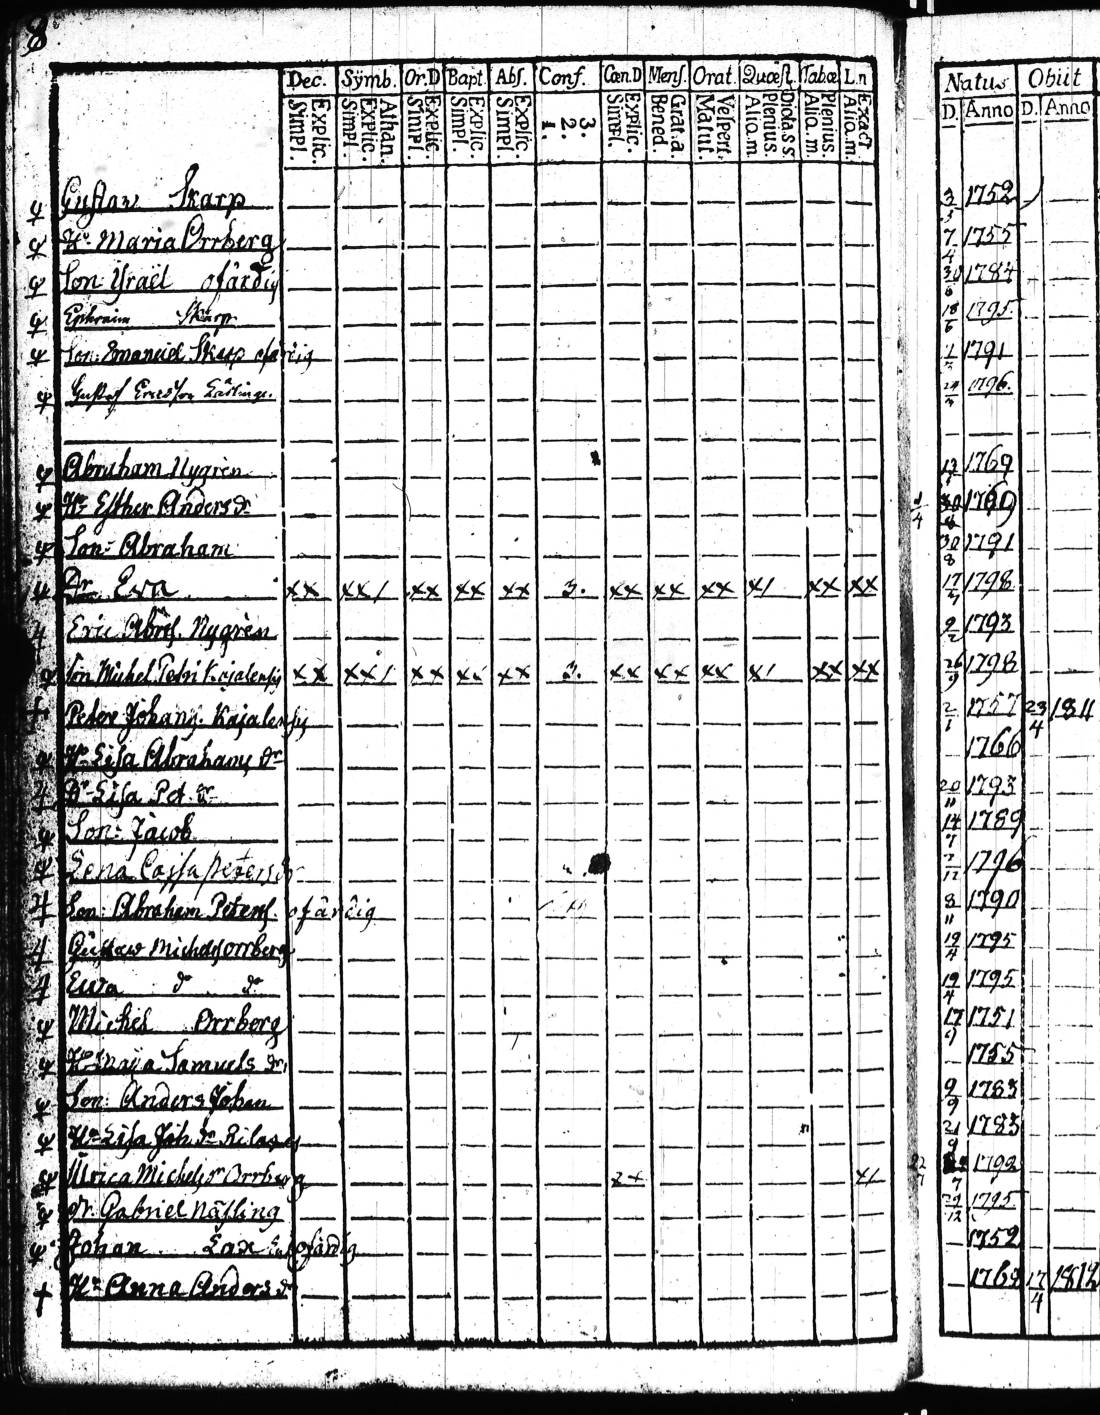 8
Dec. Symb. Or.D Bapt. Abs. Conf. Cæn.D Mens. Orat. Quæst. Tabæ L.n Natus Obiit
Explic. Simpl. Athan. Explic. Simpl. Explic. Simpl. Explic. Simpl. Explic. Simpl. 3. 2. 1. Explic. Simpl. Grat.a. Bened. Vespert. Matut. Dicta.s s Plenius. Alio.m Plenius. Alio.m Exact Alio.m. D. Anno D. Anno
Gustaw Skarp 3/3 1752
Hu Maria Orrberg 7/4 1755
Son Israël ofärdig 30/6 1784
Ephraim Skarp 18/6 1795.
Son Emanuel Skarp ofärdig 1791
Gustaf Ericsson 1796.
Abraham Nygrén 1769
Hu Esther Anders dr 1/4 1769
Son: Abraham 30/8 1791
Dr Eva xx xx/ xx xx xx 3. xx xx xx x/ xx xx 1798
Eric Abrs. Nygrén 9/2 1793
Son Michel Petri Kajalensis xx xx/ xx xx xx 3. xx xx xx x/ xx xx 26/9 1798
Peter Johans. Kajalensis 2/1 1757 23/4 1811
Hu Lisa Abrahams dr 1766
Dr Lisa Pet. dr 20/11 1793
Son: Jacob 14/9 1789
Lena Cajsa Petersdr 1796
Son: Abraham Peters. ofärdig 8/11 1790
Gustaw Michelsorrberg 19/4 1795
Ewa do do 19/4 1795
Michel Orrberg 17/9 1751
Hu Maja Samuels dr. 1755
Son: Anders Johan 9/9 1783
Hu Lisa Joh. dr 21/9 1783
Ulrica Michelsdr Orrberg x+ x/ 22/7 1792
Gabriel Näsling 1795
Johan Lax ofärdig 1752
Hu Anna Anders dr 1768 17/4 1812